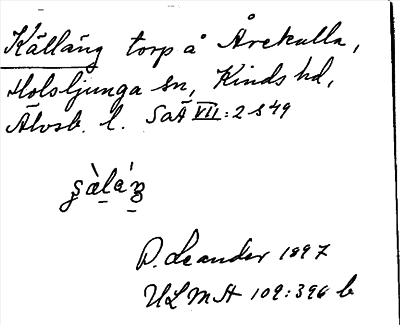 Källäng torp å Årekulla,
Holsljunga sn, Kinds hd,
Älvsb. l. SOÄ VII:2 S 49
P. Leander 1897
ULMA 109:396 b